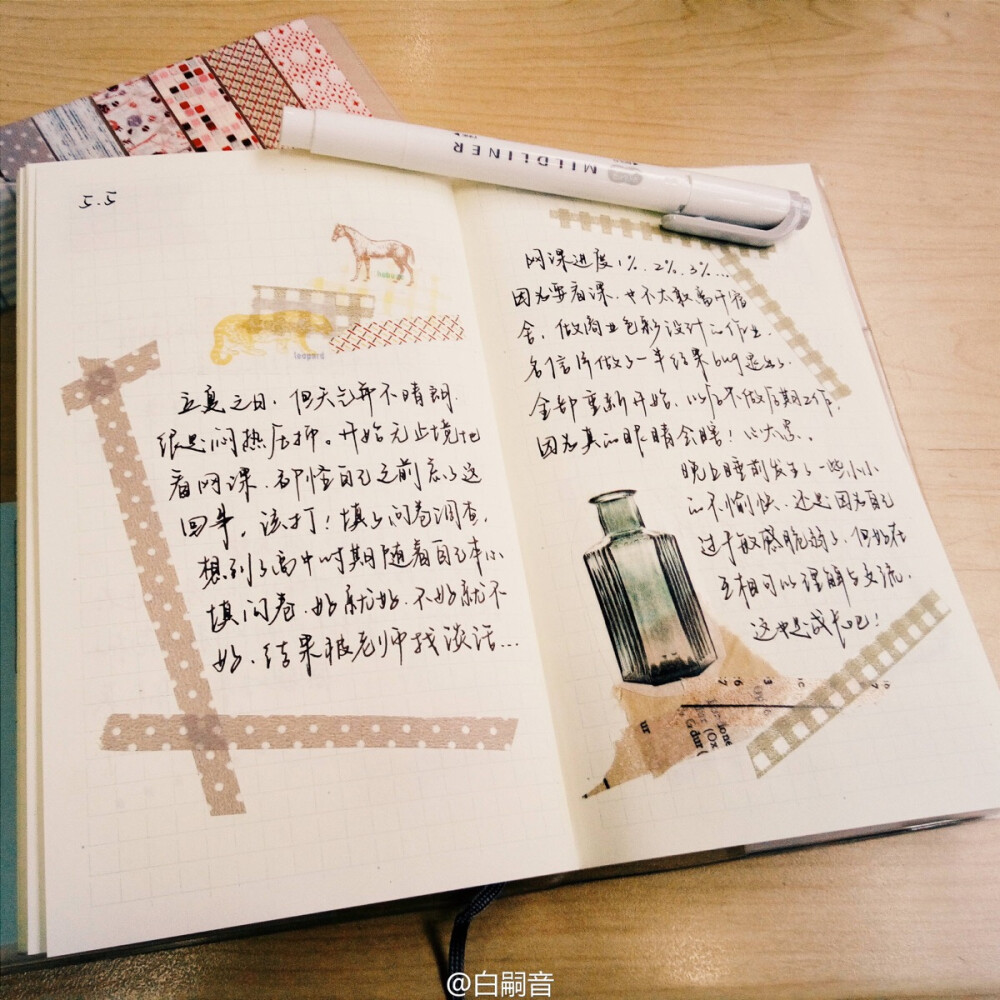 5.5
horse
leopard
立夏之日，但天气并不晴朗.
很是闷热压抑。开始无止境地
看网课.都怪自己之前忘了这
回事，该打！填了问卷调查，
想到了高中时期随着自己本心
填问卷.好就好.不好就不
好.结果被老师找谈话…
MILDLINER
网课进度1%、2%、3%…
因为要看课.也不太敢离开宿
舍，做商业色彩设计的作业.
名信片做了一半结果bug退出了.
全部重新开始，以后不做后期工作，
因为真的眼睛会瞎！心太累..
晚上睡前发生了一些小小
的不愉快.还是因为自己
过于敏感脆弱了.但好在
互相可以理解与交流.
这也是成长吧！
ur
G dur (
(Ox
@白嗣音